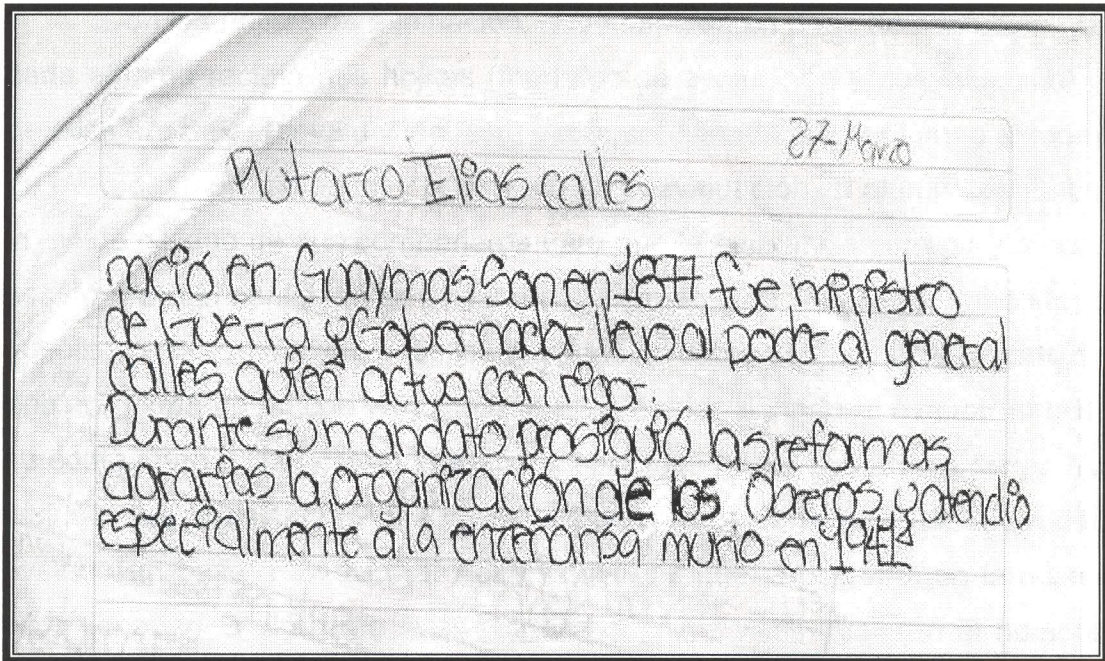 27-Marzo
Plutarco Ilias calles
nació en Guaymas Son en 1877 fue ministro
de Guerra y Gobernador llevo al poder al general
calles quien actua con rigor.
Durante su mandato prosiguió las reformas
agrarias la organización de los Obreros y atendio
especialmente a la encenansa murio en